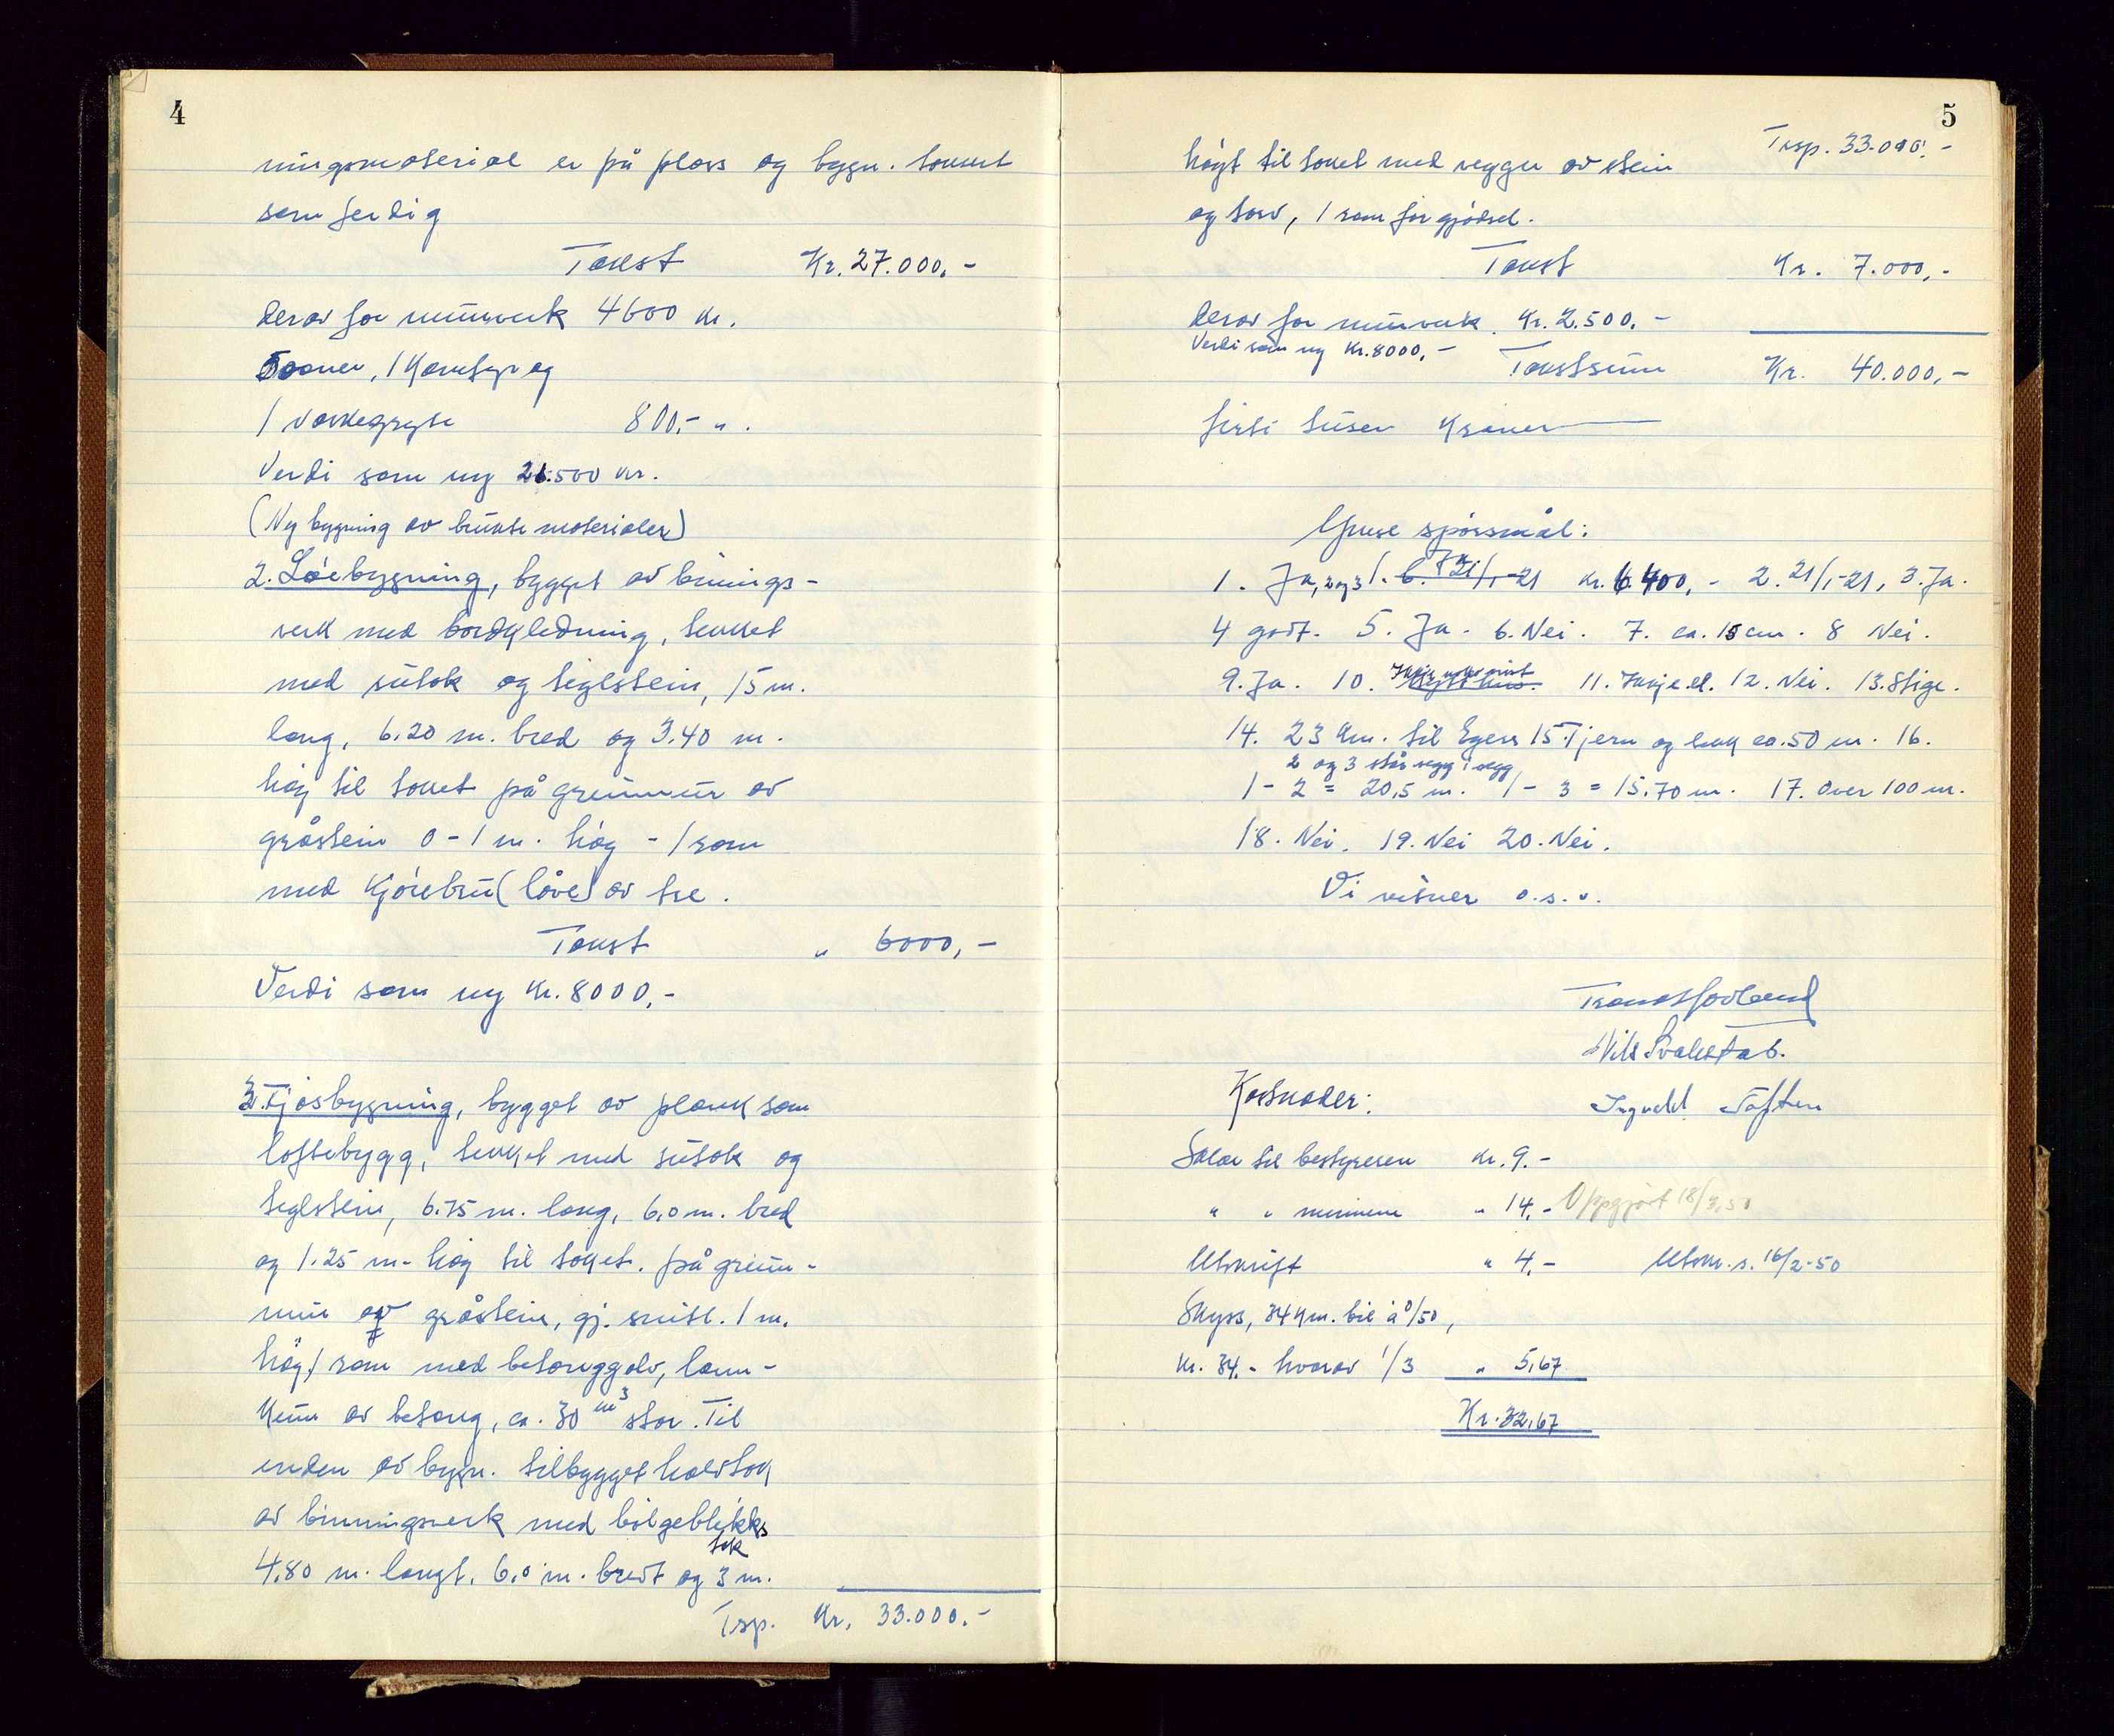 4
ningsmaterial er på plass og bygn. taksert
som ferdig
Takst Kr. 27.000,-
derav for murverk 4600 kr.
1 Komfyr og
1 vaskegryte 800,- " .
Verdi som ny kr.
(Ny bygning av brukte materialer)
2. Løebygning, bygget av binnings-
verk med bordkledning, tekket
med sutak og teglstein, 15 m.
lang, 6.20 m. bred og 3.40 m.
høg til taket på grunnmur av
gråstein 0-1 m. høg - 1 rom
med kjørebru (låve) av tre.
Takst " 6000,-
Verdi som ny kr. 8000,-
3. Fjøsbygning, bygget av plank som
loftebygg, tekket med sutak og
teglstein, 6.75 m. lang, 6,0 m. bred
og 1.25 m. høg til taket. på grunn-
mur av gråstein, gj. snitl. 1 m.
høg, 1 rom med betonggolv, land-
kum av betong, ca. 30 m³ stor. Til
enden av bygn. tilbygget halvtak
av binningsverk med bølgeblikks
tak
4.80 m. langt, 6,0 m. bredt og 3 m.
Trsp. Kr. 33.000,-
5
Trsp. 33.000,-
høgt til taket med vegger av stein
og torv, 1 rom for gjødsel.
Takst Kr. 7.000,-
derav for murverk Kr. 2.500,-
Verdi som ny Kr. 8000,-
Takstsum Kr. 40.000,-
førti tusen kroner
Ymse spørsmål:
1. Ja, kr. 6.400,- 2. 21/1-21, 3. Ja.
4 godt. 5. Ja. 6. Nei. 7. ca. 15 cm. 8 Nei.
9. Ja. 10. Ikkje 11. Ikkje el. 12. Nei. 13. Stige.
14. 23 km. til Egers 15. Tjern og bekk ca. 50 m. 16.
2 og 3 står vegg i vegg
1 - 2 = 20,5 m. 1 - 3 = 15.70 m. 17. Over 100 m.
18. Nei. 19. Nei 20. Nei.
Vi vitner o.s.v.
Nils Svalestad.
Ingvald Toften
Kostnader:
Salær til bestyreren kr. 9.-
" " mennene " 14.- Oppgjort 18/3.50
Utskrift " 4.- Utskr. s. 16/2-50
Skyss, 34 km. bil à 0/50,
kr. 34.- hvorav 1/3 " 5,67
Kr. 32,67